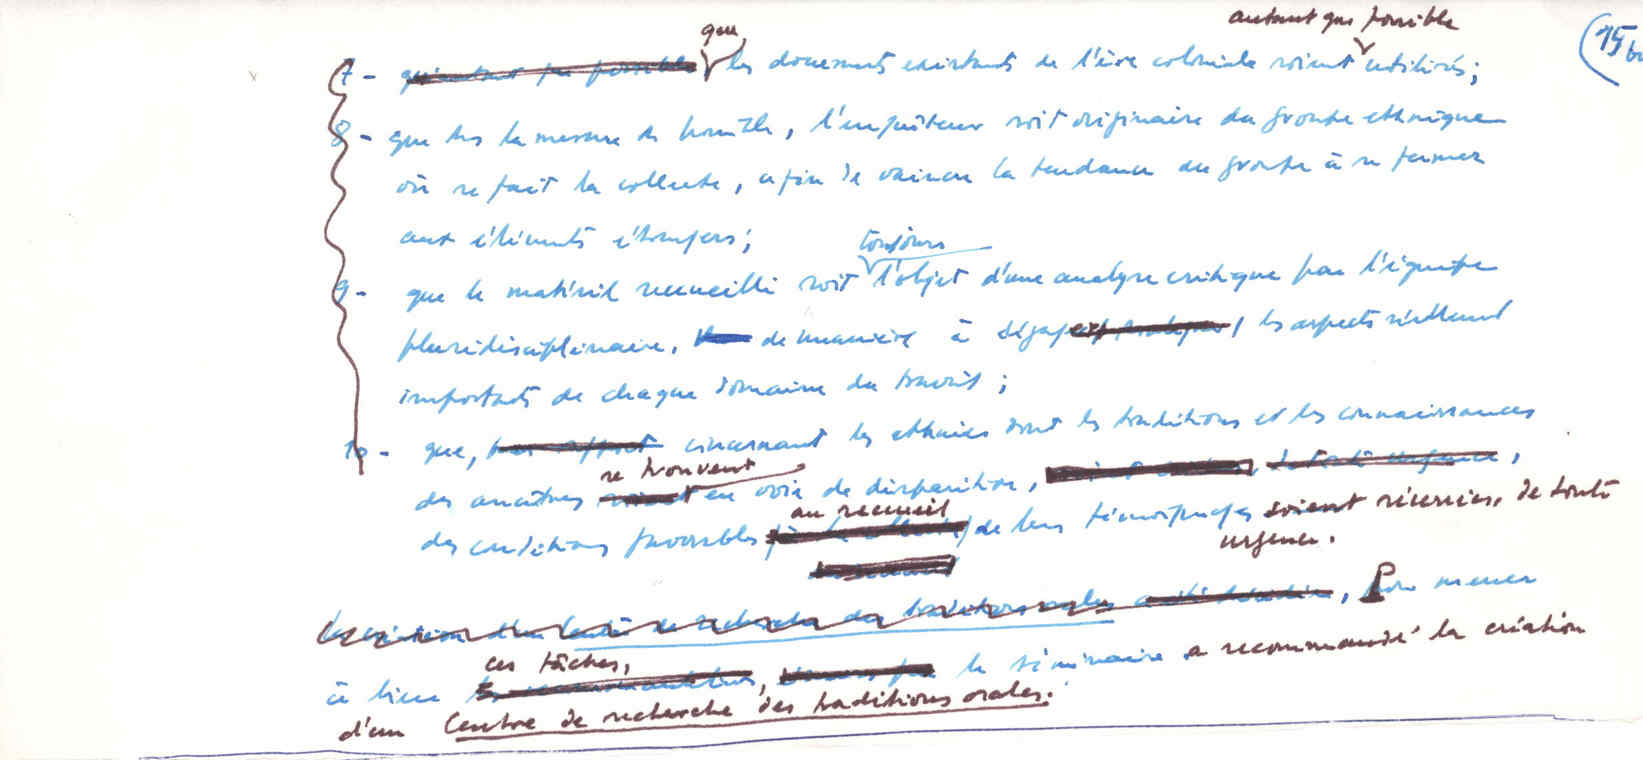 autant que possible
(15 bis
7 - que les documents existants de l'ère coloniale soient utilisés;
8 - que dans la mesure du possible, l'enquêteur soit originaire du groupe ethnique
où se fait la collecte, afin de vaincre la tendance du groupe à se fermer
aux éléments étrangers;
toujours
9 - que le matériel recueilli soit l'objet d'une analyse critique par l'équipe
pluridisciplinaire, de manière à les aspects réellement
importants de chaque domaine du travail;
10 - que, concernant les ethnies dont les traditions et les connaissances
se trouvent
des ancêtres en voie de disparition,
au recueil
des conditions favorables de leurs témoignages soient réunies, de toute
urgence.
Pour mener
ces tâches,
à bien le séminaire a recommandé la création
d'un Centre de recherche des traditions orales.